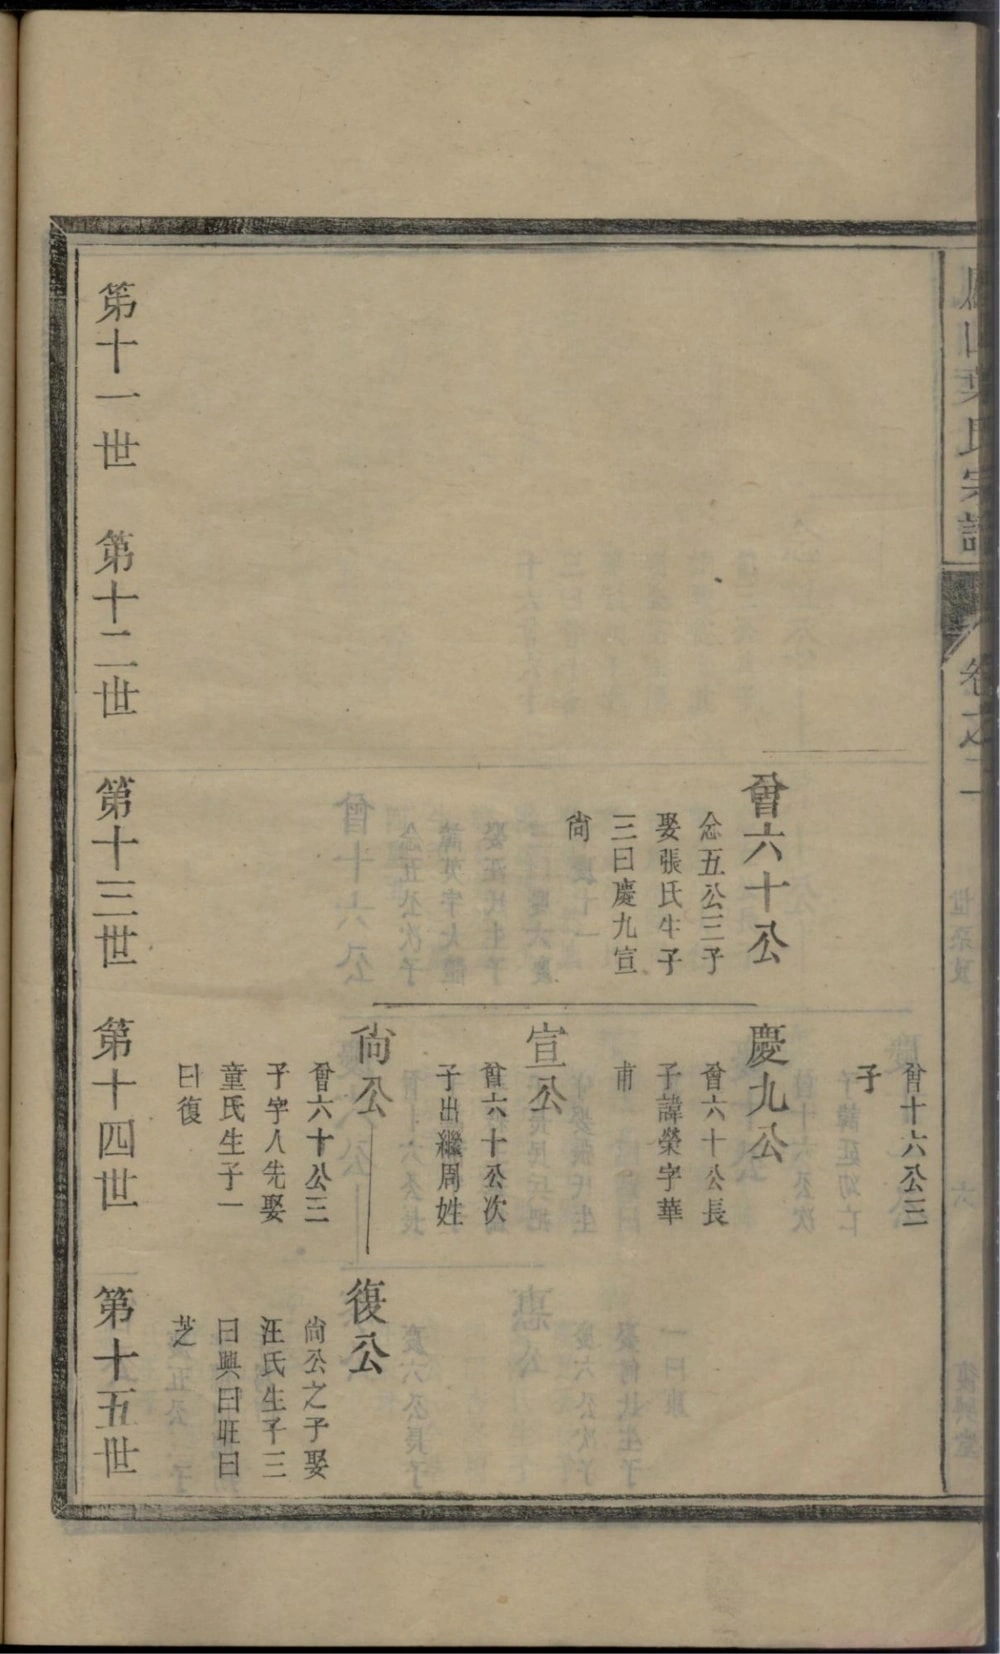 葉氏宗譜
卷之二
曾十六公三
子
曾六十公
念五公三子
娶張氏生子
三曰慶九宣
尙
慶九公
曾六十公長
子諱榮字華
甫
宣公
曾六十公次
子出繼周姓
尙公
曾六十公三
子字人先娶
童氏生子一
曰復
復公
尙公之子娶
汪氏生子三
曰興曰旺曰
芝
第十一世
第十二世
第十三世
第十四世
第十五世